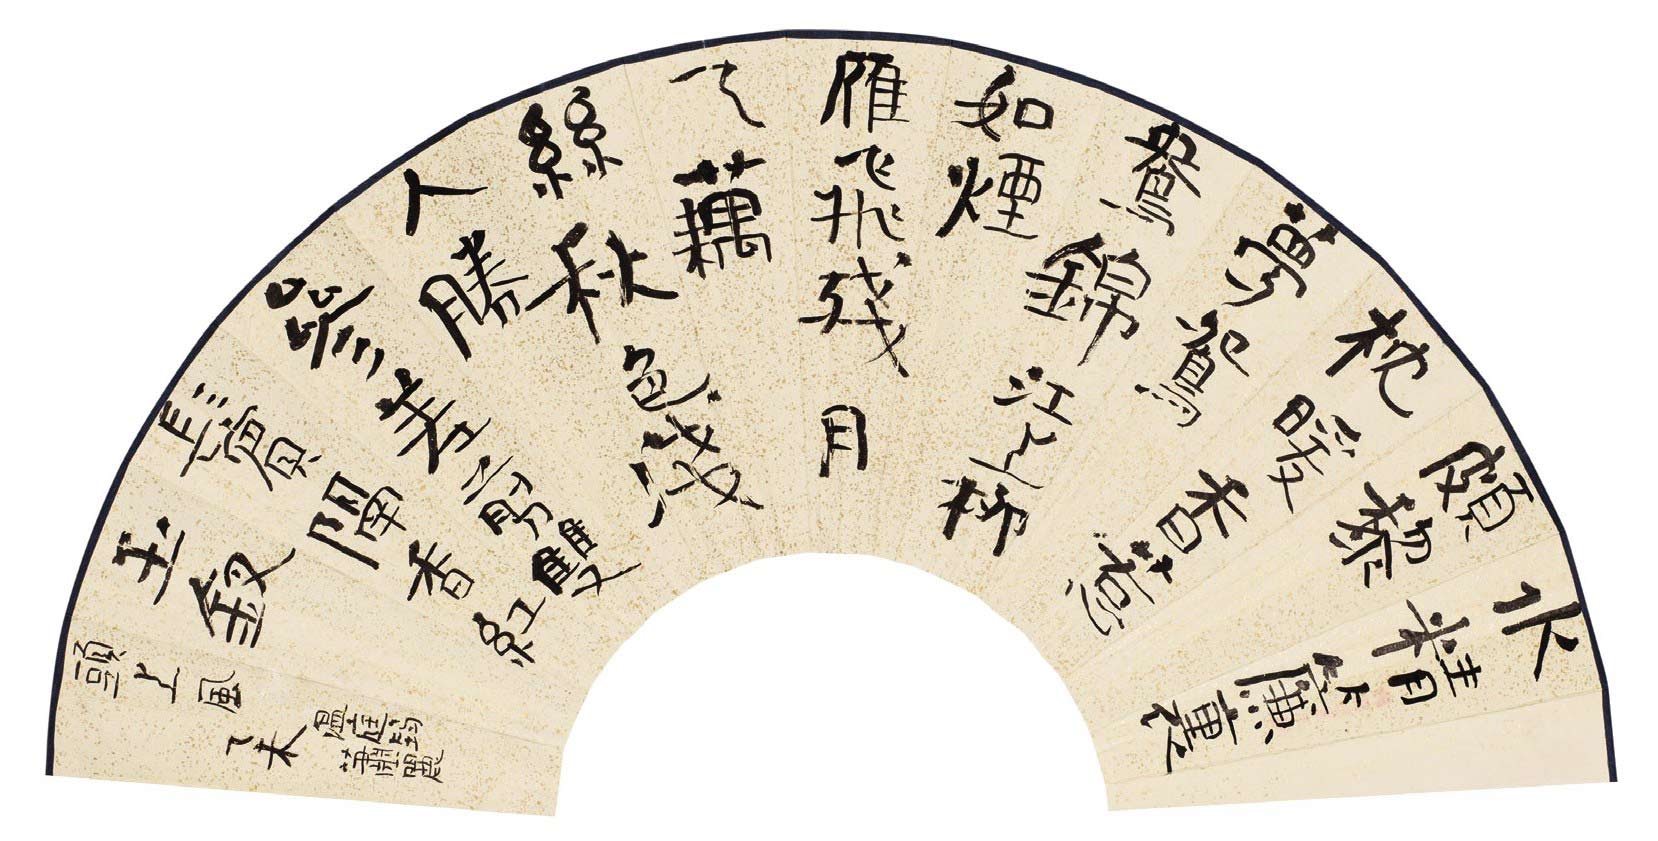 水精簾裏
頗黎
枕暖香惹
夢鴛
鴦錦江上柳
如煙
雁飛殘月
天藕
絲秋色淺
人勝
參差剪雙
鬢隔香紅
玉釵
頭上風
乙未
溫庭筠